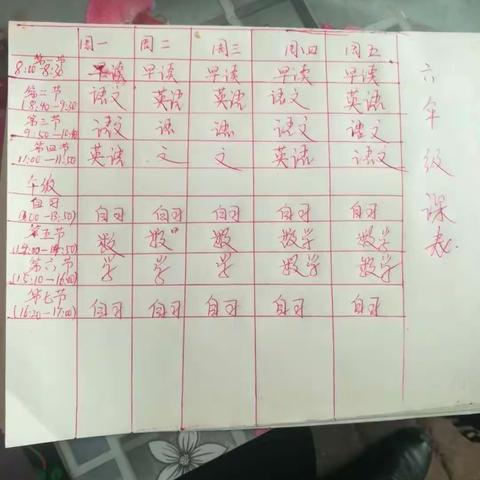 周一 周二 周三 周四 周五
第一节 8:00-8:30 早读 早读 早读 早读 早读
第二节 8:40-9:30 语文 英语 英语 语文 英语
第三节 9:50-10:40 语文 语 语 语文 语文
第四节 11:00-11:50 英语 文 文 英语 语文
午饭
自习 自习 自习 自习 自习 自习
第五节 (14:00-14:50) 数 数 数 数学 数学
第六节 (15:10-16:00) 学 学 学 数学 数学
第七节 (16:20-17:00) 自习 自习 自习 自习 自习
六年级课表